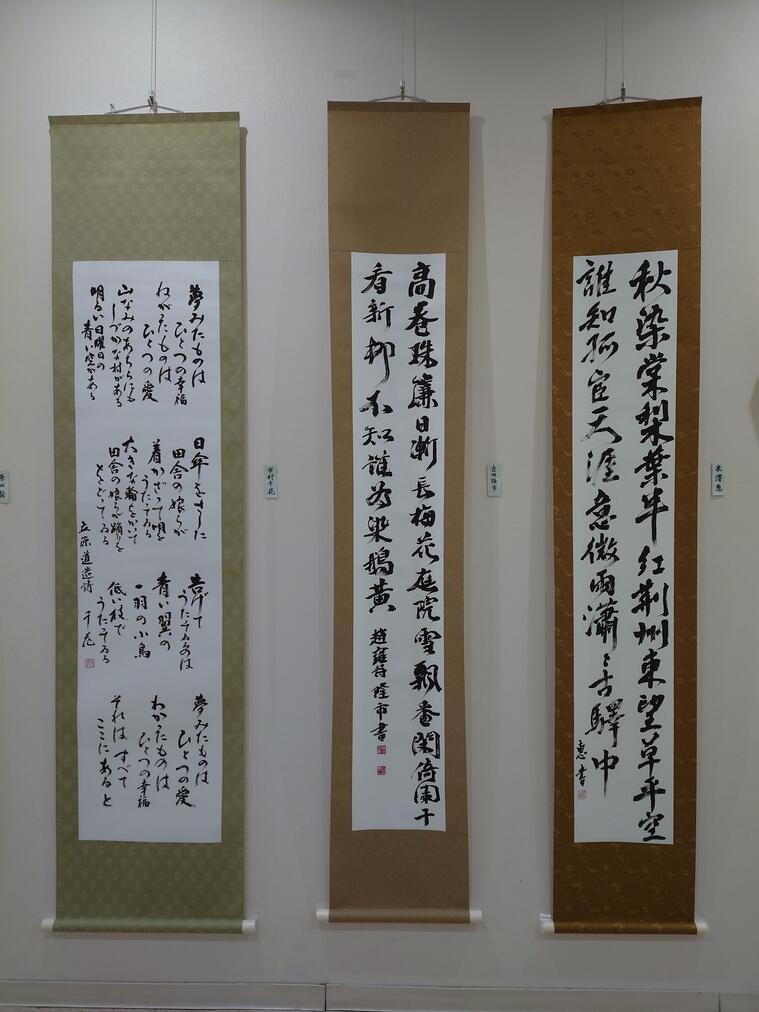 秋染棠梨葉半紅荊州東望草平空
誰知孤宦天涯意微雨瀟々古驛中
惠書
米澤惠
高卷珠簾日漸長梅花庭院雪飄香閑倚闌干
看新柳不知誰為染鵝黃
趙雍詩 隆市書
吉田隆市
夢みたものは
ひとつの幸福
ねがったものは
ひとつの愛
山なみのあちらにも
しづかな村がある
明るい日曜日の
青い空がある
日傘をさした
田舎の娘らが
着かざって唄を
うたってゐる
大きな輪をかいて
田舎の娘らが踊りを
をどってゐる
告げて
うたってゐるのは
青い翼の
一羽の小鳥
低い枝で
うたってゐる
夢みたものは
ひとつの愛
ねがったものは
ひとつの幸福
それらはすべて
ここにあると
立原道造詩 千花
市村千花